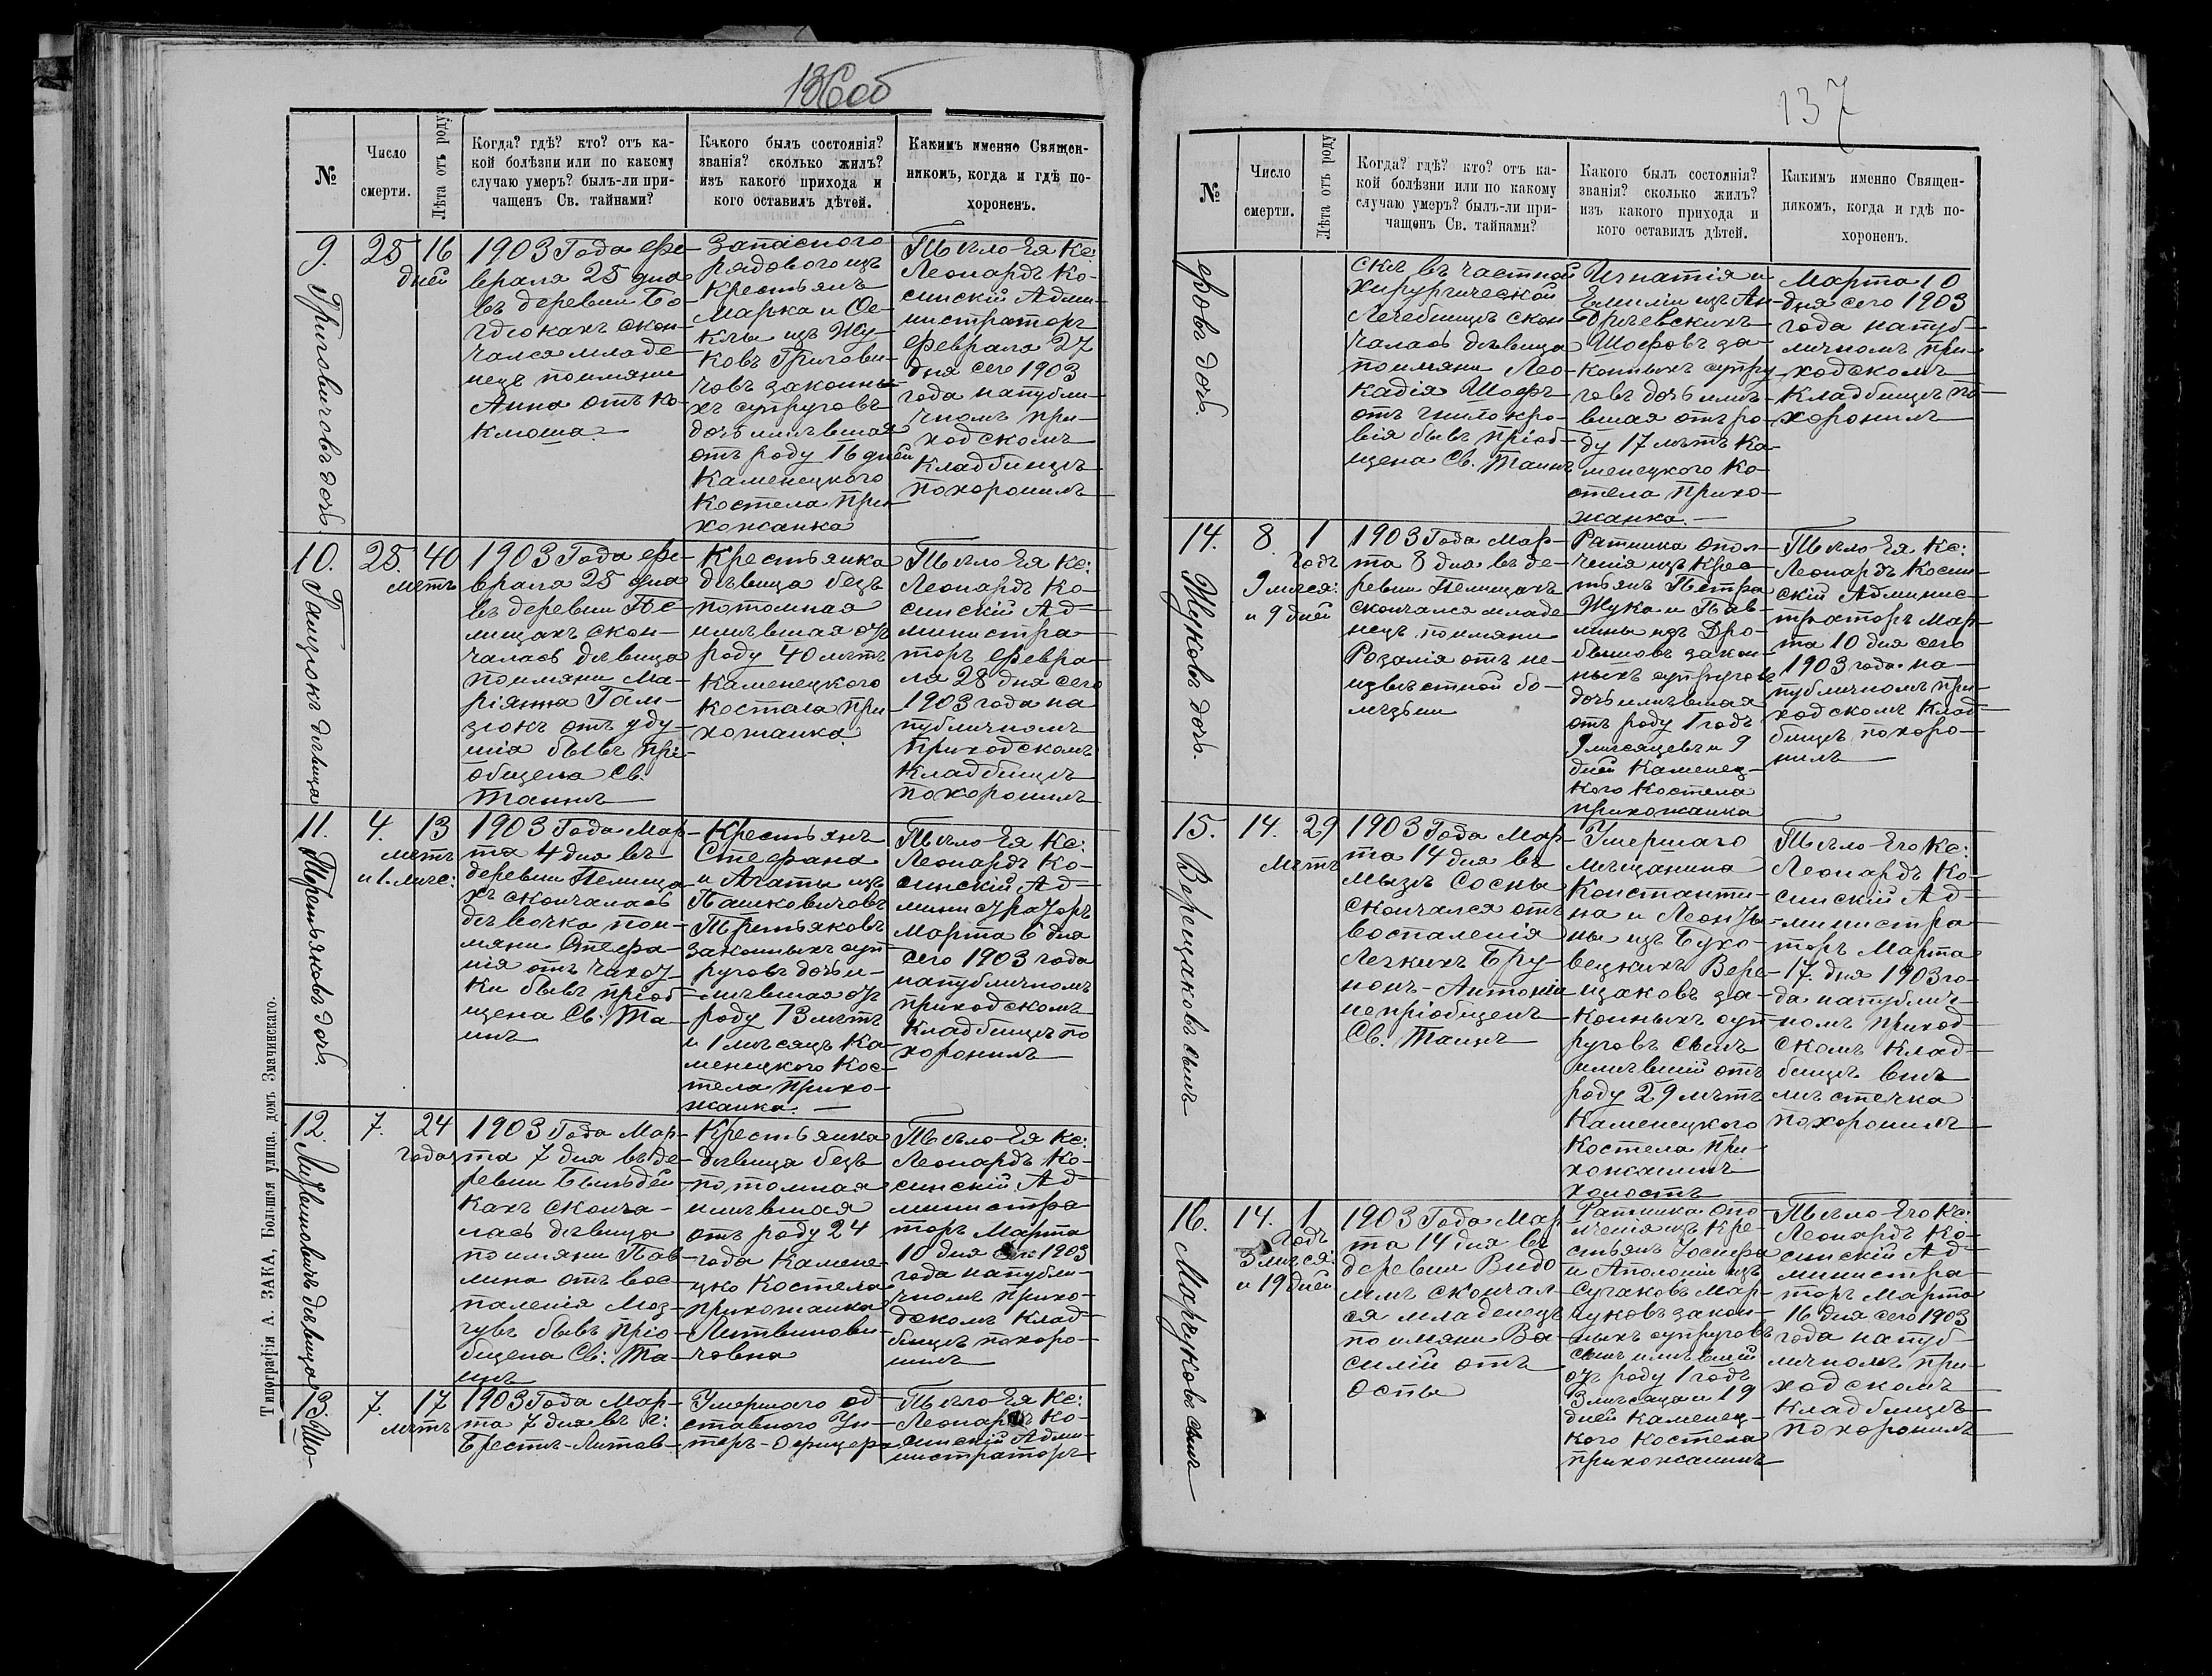 136об
№
Число
смерти.
Лѣта отъ роду
Когда? гдѣ? кто? отъ ка-
кой болѣзни или по какому
случаю умеръ? былъ-ли при-
чащенъ Св. тайнами?
Какого былъ состоянія?
званія? сколько жилъ?
изъ какого прихода и
кого оставилъ дѣтей.
Какимъ именно Священ-
никомъ, когда и гдѣ по-
хороненъ.
9.
Григовичовъ дочь
25
16
дней
1903 Года фе-
враля 25 дня
въ деревни Бо-
гдюкахъ скон-
чался младе-
нецъ поимяни
Анна отъ ко-
клюша.
Запасного
рядового изъ
Крестьянъ
Марка и Ѳе-
клы изъ Жу-
ковъ Григови-
човъ законны-
хъ супруговъ
дочь имѣвшая
отъ роду 16 дней
Каменецкого
Костела При-
хожанка
Тѣло Ея Кс:
Леонардъ Ко-
синскій Адми-
нистраторъ
Февраля 27
дня сего 1903
года напубли-
чномъ при-
ходскомъ
Кладбищѣ
похоронилъ
10.
Гамзюкъ дѣвица
25.
40
лѣтъ
1903 Года фе-
враля 25 дня
въ деревни Пе-
лищахъ скон-
чалась дѣвица
поимяни Ма-
ріянна Гам-
зюкъ отъ уду-
шія бывъ прі-
общена Св.
Таинъ
Крестьянка
дѣвица безъ
потомная
имѣвшая отъ
роду 40 лѣтъ
Каменецкого
Костела при
хожанка
Тѣло Ея Кс:
Леонардъ Ко-
синскій Ад-
министра-
торъ Февра-
ля 28 дня сего
1903 года на
публичномъ
Приходскомъ
Кладбищѣ
похоронилъ
11.
Третьяковъ дочь
4.
13
лѣтъ
и 1. мѣс:
1903 Года Мар-
та 4 дня въ
деревни Пелища-
хъ скончалась
дѣвочка пои-
мяни Стефа-
нія отъ чахот-
ки бывъ пріоб-
щена Св: Та-
инъ
Крестьянъ
Стефана
и Агаты изъ
Пашковичовъ
Третьяковъ
законныхъ суп-
руговъ дочь и-
мѣвшая отъ
роду 13 лѣтъ
и 1 мѣсяцъ Ка-
менецкого Кос-
тела Прихо-
жанка. —
Тѣло Ея Кс:
Леонардъ Ко-
синскій Ад-
министраторъ
Марта 6 дня
сего 1903 года
напубличномъ
приходскомъ
Кладбищѣ по
хоронилъ
12.
Литвиновичъ дѣвица
7.
24
года
1903 Года Мар-
та 7 дня въ де-
ревни Бильдей-
кахъ сконча-
лась дѣвица
поимяни Пав-
лина отъ вос-
паленія Моз-
гувъ бывъ прі-
общена Св: Та-
инъ
Крестьянка
дѣвица безъ
потомная
имѣвшая
отъ роду 24
года Камене-
цко Костела
прихожанка
Литвинови-
човна
Тѣло Ея Кс:
Леонардъ Ко-
синскій Ад-
министра
торъ Марта
10 дня 1903
года напубли-
чномъ прихо-
дскомъ Клад-
бищѣ похоро-
нилъ
13.
Шо-
7.
17
лѣтъ
1903 Года Мар-
та 7 дня въ г:
Брестѣ-Литов-
Умершаго од
ставного Ун-
теръ-Офицера
Тѣло Ея Кс:
Леонардъ Ко-
синскій Адми-
нистраторъ
Типографія А. ЗАКА, Большая улица, домъ Змачинскаго.
137
№
Число
смерти.
Лѣта отъ роду
Когда? гдѣ? кто? отъ ка-
кой болѣзни или по какому
случаю умеръ? былъ-ли при-
чащенъ Св. тайнами?
Какого былъ состоянія?
званія? сколько жилъ?
изъ какого прихода и
кого оставилъ дѣтей.
Какимъ именно Священ-
никомъ, когда и гдѣ по-
хороненъ.
еровъ дочь
скѣ въ частной
хирургической
Лечебницѣ скон-
чалась дѣвица
поимяни Лео-
кадія Шоферъ
отъ гнилокро-
вія бывъ пріоб-
щена Св. Таинъ
Игнатія и
Емиліи изъ Ан-
дричевскихъ
Шоферовъ за-
конныхъ супру
говъ дочь имѣ-
вшая отъ ро-
ду 17 лѣтъ Ка-
менецкого Ко-
стела Прихо-
жанка. —
Марта 10
дня сего 1903
года напуб-
личномъ при-
ходскомъ
Кладбищѣ по-
хоронилъ
14.
Жуковъ дочь
8
1
годъ
9 мѣся:
и 9 дней
1903 Года Мар-
та 8 дня въ де-
ревни Пелищахъ
скончался младе
нецъ поимяни
Розалія отъ не-
извѣстной бо-
лѣзьни
Ратника опол-
ченія изъ Крес-
тьянъ Петра
Жука и Пав-
лины изъ Дро-
бышовъ закон-
ныхъ супруговъ
дочь имѣвшая
отъ роду 1 годъ
9 мѣсяцевъ и 9
дней Каменец-
кого Костела
прихожанка
Тѣло Ея Кс:
Леонардъ Косин-
скій Админис-
траторъ Мар-
та 10 дня сего
1903 года на-
публичномъ при-
ходскомъ Клад-
бищѣ похоро-
нилъ
15.
Верещаковъ сынъ
14.
29
лѣтъ
1903 Года Мар-
та 14 дня въ
Мызѣ Сосны
скончался отъ
воспаленія
Легкихъ Бру-
нонъ-Антоній
непріобщенъ
Св. Таинъ
Умершаго
мѣщанина
Константи-
на и Леонты-
ны изъ Бухо-
вецкихъ Вере-
щаковъ за-
конныхъ суп-
руговъ сынъ
имѣвшій отъ
роду 29 лѣтъ
Каменецкого
Костела При-
хожанинъ
холостъ
Тѣло Его Кс:
Леонардъ Ко-
синскій Ад-
министра-
торъ Марта
17. дня 1903 го-
да напублич-
номъ приход-
скомъ Клад-
бищѣ
мѣстечка
похоронилъ
16.
Марчуковъ сынъ
14.
1
годъ
3 мѣся:
и 19 дней
1903 Года Мар
та 14 дня въ
деревни Видо-
млѣ скончал-
ся младенецъ
поимяни Ва-
силій отъ
оспы
Ратника опо-
лченія изъ Кре-
стьянъ Іосифа
и Аполоніи изъ
Сугаковъ Мар-
чуковъ закон-
ныхъ супруговъ
сынъ имѣвшій
отъ роду 1 годъ
3 мѣсяца и 19
дней Каменец-
кого Костела
прихожанинъ
Тѣло Его Кс:
Леонардъ Ко-
синскій Ад-
министра-
торъ Марта
16 дня сего 1903
года напуб-
личномъ при-
ходскомъ
Кладбищѣ
похоронилъ